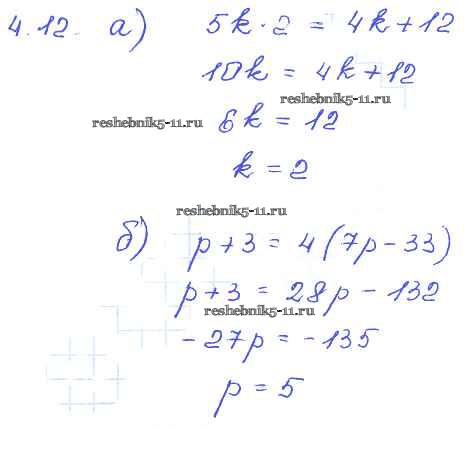 4.12. а) 5k · 2 = 4k + 12
10k = 4k + 12
reshebnik5-11.ru
reshebnik5-11.ru
6k = 12
k = 2
reshebnik5-11.ru
б) p + 3 = 4(7p - 33)
p + 3 = 28p - 132
reshebnik5-11.ru
-27p = -135
p = 5